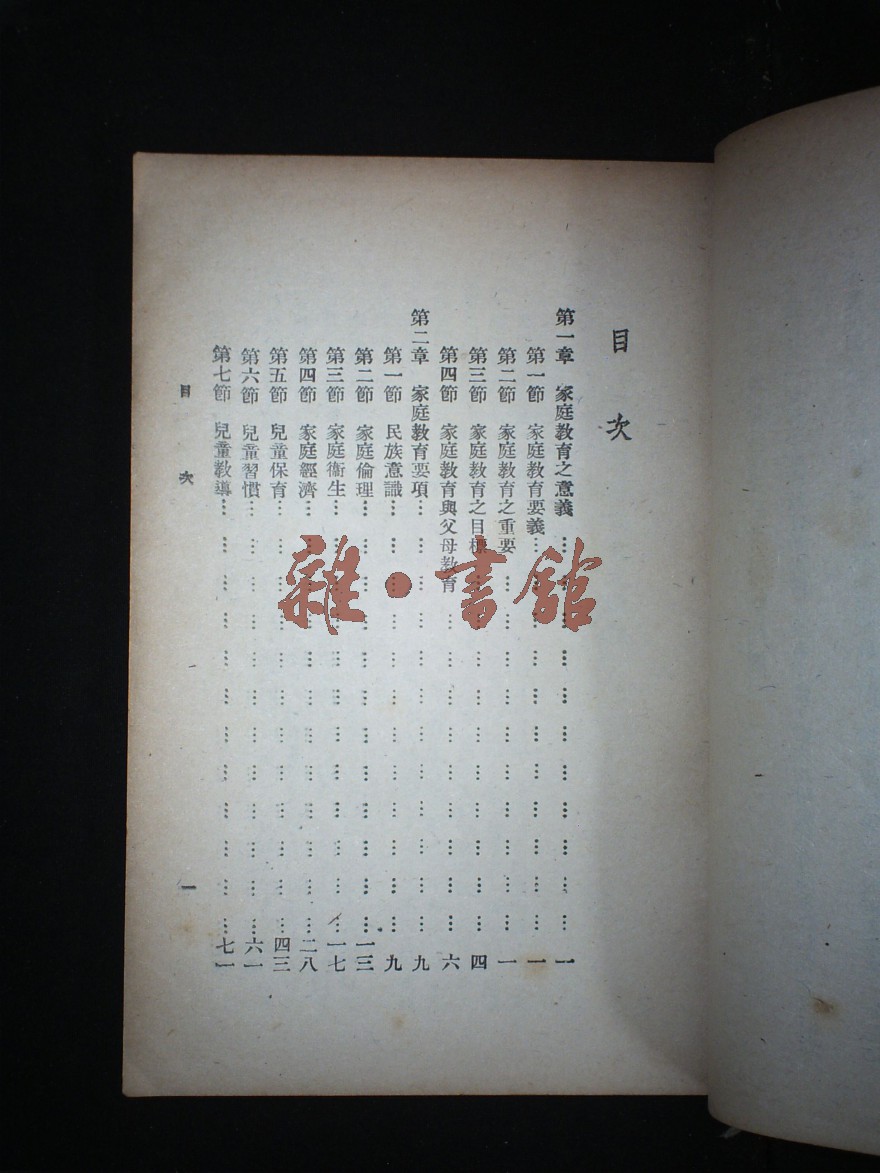 目次
第一章 家庭教育之意義………………………………一
第一節 家庭教育要義………………………………一
第二節 家庭教育之重要………………………………一
第三節 家庭教育之目標………………………………四
第四節 家庭教育與父母教育………………………………六
第二章 家庭教育要項………………………………九
第一節 民族意識………………………………九
第二節 家庭倫理………………………………一三
第三節 家庭衞生………………………………一七
第四節 家庭經濟………………………………二八
第五節 兒童保育………………………………四三
第六節 兒童習慣………………………………六一
第七節 兒童教導………………………………七一
目次 一
雜·書館